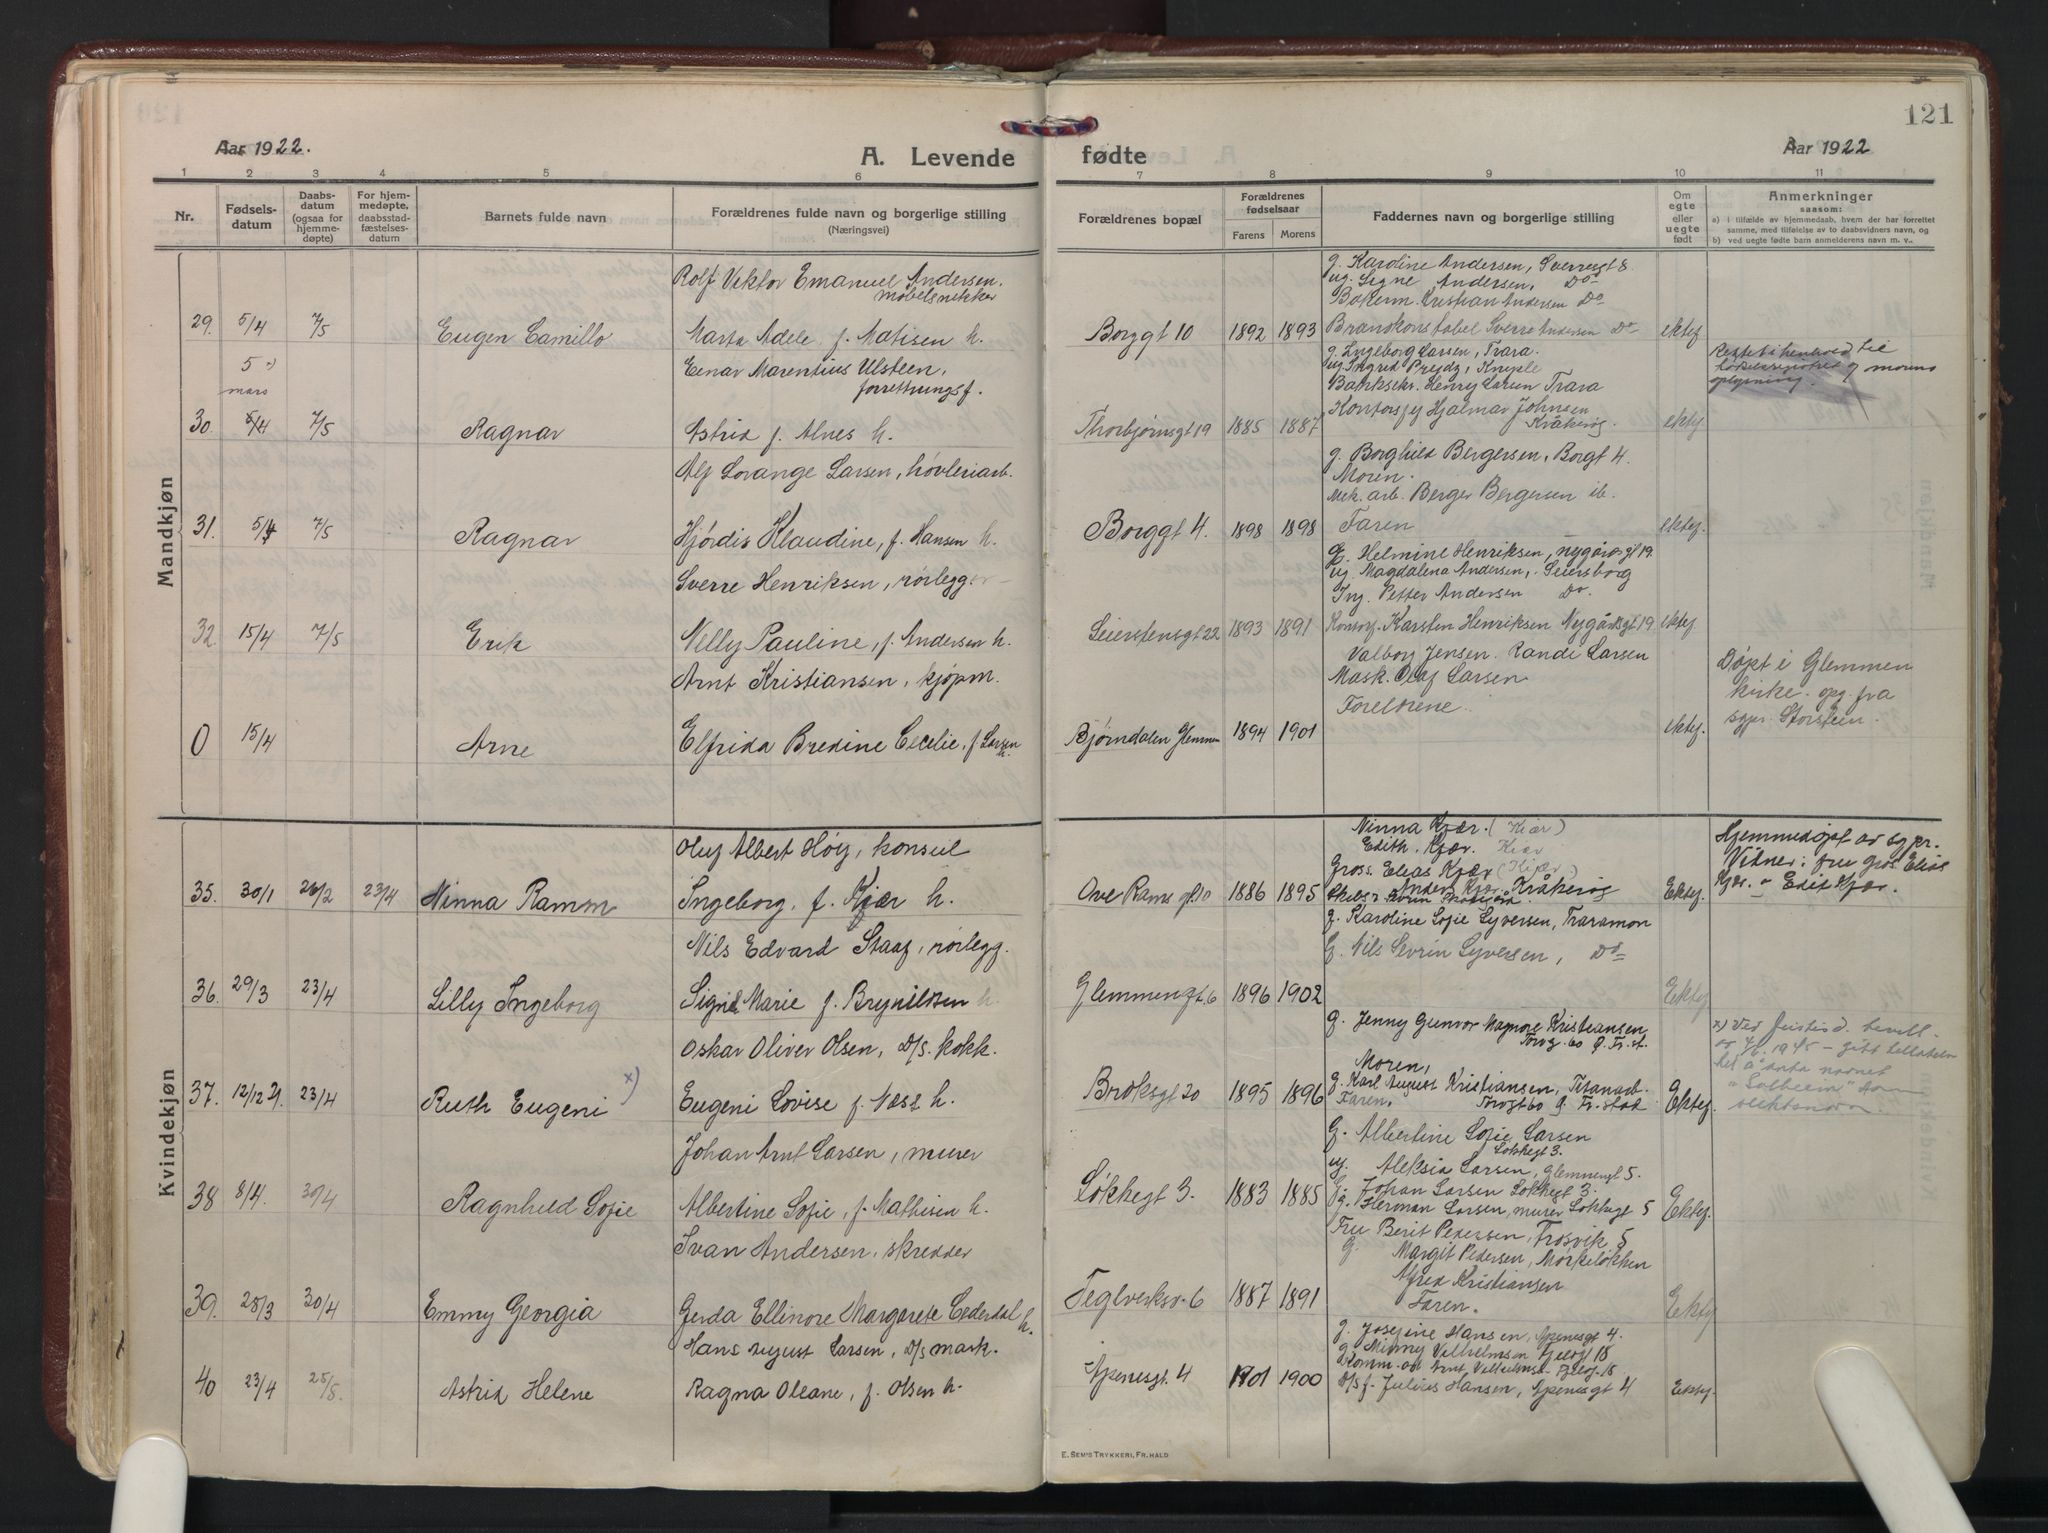 121
Aar 1922.
A. Levende
fødte
Aar 1922
1 2 3 4 5 6 7 8 9 10 11
Nr.
Fødsels-
datum
Daabs-
datum
(ogsaa for
hjemme-
døpte)
For hjem-
medøpte,
daabsstad-
fæstelses-
datum
Barnets fulde navn
Forældrenes fulde navn og borgerlige stilling
(Næringsvei)
Forældrenes bopæl
Forældrenes
fødselsaar
Farens Morens
Faddernes navn og borgerlige stilling
Om
egte
eller
uegte
født
Anmerkninger
saasom:
a) i tilfælde av hjemmedaab, hvem der har forrettet
samme, med tilføielse av to daabsvidners navn, og
b) ved uegte fødte barn anmelderens navn m. v.
Mandkjøn
Rolf Viktor Emanuel Andersen.
møbelsnekker
g. Karoline Andersen, Sverresgt 8.
ug. Signe Andersen, Do
Bokerm. Kristian Andersen Do
29. 5/4 7/5 Eugen Camillo Marta Adele f. Matisen h. Borggt 10 1892 1893 Brankonstabel Sverre Andersen Do ektef
5 x)
mars
Einar Marentius Ulsteen,
forretningsf.
g. Ingeborg Larsen, Trara.
ug. Ingrid Prydz, Kniple
Banksekr. Henry Larsen Trara
Rettet i henhold til
fødselsregistret og morens
oplysning.
30. 5/4 7/5 Ragnar Astrid f. Alnes h. Thorbjørnsgt 19 1885 1887 Kontorsjef Hjalmar Johnsen
Kråkerøy. ektef
Alf Lorange Larsen, høvleriarb.
g. Borghild Bergersen, Borgt 4.
Moren.
Mek. arb. Berger Bergersen ib.
31. 5/4 7/5 Ragnar Hjørdis Klaudine, f. Hansen h. Borggt 4. 1898 1898 Faren ektef.
Sverre Henriksen, rørlegger
g. Helmine Henriksen, Nygårdsgt 19.
ug. Magdalena Andersen, Seiersborg
Ing. Petter Andersen Do.
32. 15/4 7/5 Erik Nelly Pauline, f. Andersen h. Seierstensgt 22 1893 1891 Kontorf. Karsten Henriksen Nygårdsgt 19 ektef
Arnt Kristiansen, kjøpm.
Valborg Jensen. Randi Larsen
Mask. Olaf Larsen
Foreldrene.
Døpt i Glemmen
kirke. opg. fra
sgpr. Storsteen.
0 15/4 Arne Elfrida Bredine Cecilie, f. Larsen h. Bjørndalen Glemmen 1894 1901 ektef.
Kvindekjøn
Oluf Albert Høiy, konsul
Ninna Kjær. (Kiær)
Edith. Kjær. Kiær
Gross. Elias Kjær (Kiær)
Anders Kjær, Kråkerøy
Hjemmedøpt av sgpr.
Vitner: fru gros Elise
Kjær. o Edit Kjær.
35. 30/1 26/2 23/4 Ninna Ramm Ingeborg, f. Kjær h. Ove Rams gt 10 1886 1895 Ektef.
Nils Edvard Staaf, rørlegg.
g. Karoline Sofie Syversen, Traramon
G. Nils Sevrin Syversen, Do
36. 29/3 23/4 Lilly Ingeborg Signe Marie f. Brynildsen h Glemmengt. 6 1896 1902 Ektef
Oskar Oliver Olsen, D/S. kokk.
g. Jenny Gunvor Magnore Kristiansen,
Torvg. 60 Ø. Fr.st.
Moren,
x) Ved Justisd. bevill.
av 7/6. 1945 - gitt tillatelse
til å anta navnet
"Solheim" som
slektsnavn.
37. 12/12 21. 23/4 Ruth Eugeni x) Eugeni Lovise f. Næss h. Broksgt 20 1895 1896 g. Karl August Kristiansen, Titanarb.
Faren. Torvgt 60 Ø. Fr.stad Ektef.
Johan Arnt Larsen, murer
G. Albertine Sofie Larsen
Løkkegt 3.
ug. Aleksia Larsen, Glemmengt 5.
38 8/4. 30/4 Ragnhild Sofie Albertine Sofie, f. Mathisen h. Løkkegt 3. 1883 1885 G. Johan Larsen Løkkegt 3.
g. Herman Larsen, murer Løkkegt 5 Ektef.
Ivan Andersen, skredder
Fru Berit Pedersen, Trosvik 5
G. Margit Pedersen, Mørkeløkken
Alfred Kristiansen
39. 28/3 30/4 Emmy Georgia Gerda Ellinore Margarete Cederdal h. Teglverksv. 6 1887 1891 Faren. Ektef
Hans August Larsen, D/S mask.
g. Josefine Hansen, Apenesgt 4.
g. Minny Vilhelmsen Fjelgt 18
Komm. arb Arnt Vilhelmsen Fjelg. 18
40 23/4 25/5. Astrid Helene Ragna Oleane, f. Olsen h. Apenesgt 4 1901 1900 D/S f. Julius Hansen, Apenesgt 4 Ektef.
E. SEM'S TRYKKERI, FR.HALD